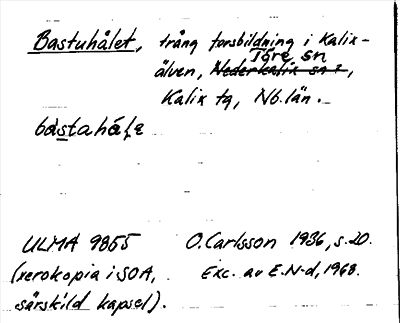 Bastuhålet, trång forsbildning i Kalix-
Töre sn
älven, Nederkalix sn?,
Kalix tg, Nb. län.
bástahāle
ULMA 9855 O. Carlsson 1936, s. 20.
(xerokopia i SOA, Exc. av E. N-d, 1968.
särskild kapsel).